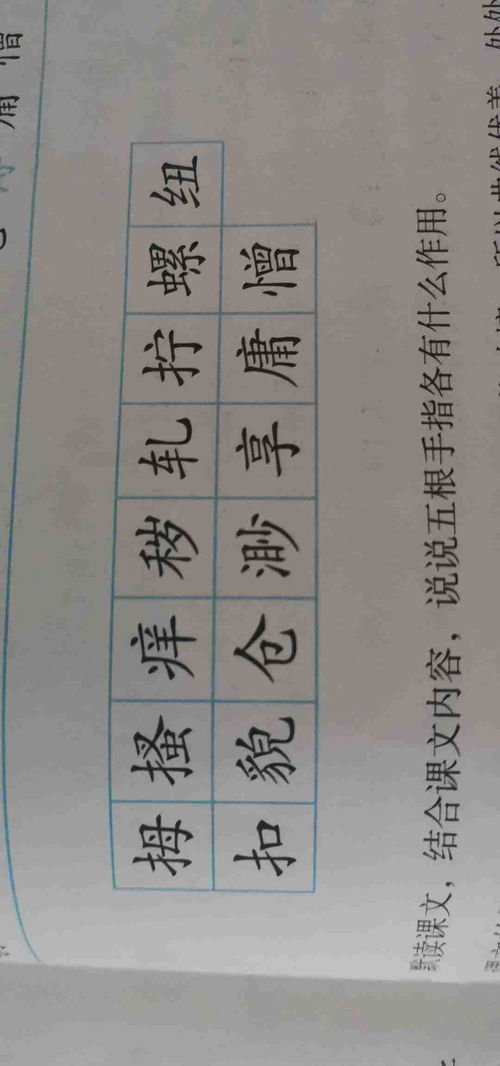 拇搔痒秽轧拧螺纽
扣貌仓渺享庸憎
默读课文，结合课文内容，说说五根手指各有什么作用。